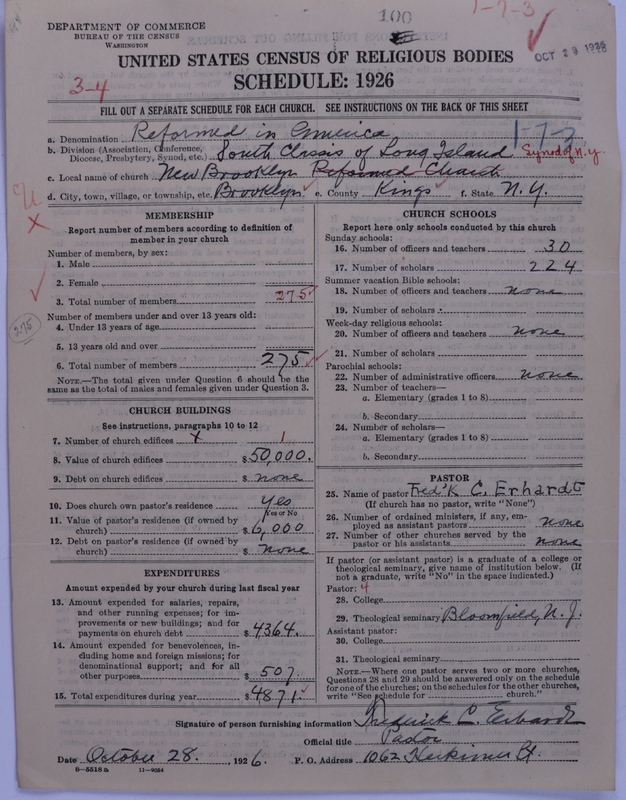 DEPARTMENT OF COMMERCE
BUREAU OF THE CENSUS
WASHINGTON
100
1-7-3
OCT 29 1926
UNITED STATES CENSUS OF RELIGIOUS BODIES
SCHEDULE: 1926
3-4
FILL OUT A SEPARATE SCHEDULE FOR EACH CHURCH. SEE INSTRUCTIONS ON THE BACK OF THIS SHEET
a. Denomination Reformed in America
1-7-3
b. Division (Association, Conference, Diocese, Presbytery, Synod, etc.) South Classis of Long Island Synod of N.Y.
c. Local name of church New Brooklyn Reformed Church
d. City, town, village, or township, etc. Brooklyn e. County Kings f. State N.Y.
MEMBERSHIP
Report number of members according to definition of
member in your church
Number of members, by sex:
1. Male
2. Female
3. Total number of members 275
Number of members under and over 13 years old:
4. Under 13 years of age
275
5. 13 years old and over
6. Total number of members 275
NOTE.—The total given under Question 6 should be the
same as the total of males and females given under Question 3.
CHURCH BUILDINGS
See instructions, paragraphs 10 to 12
7. Number of church edifices x 1
8. Value of church edifices $ 50,000.
9. Debt on church edifices $ none
10. Does church own pastor's residence yes
Yes or No
11. Value of pastor's residence (if owned by
church) $ 6,000
12. Debt on pastor's residence (if owned by
church) $ none
EXPENDITURES
Amount expended by your church during last fiscal year
13. Amount expended for salaries, repairs,
and other running expenses; for im-
provements or new buildings; and for
payments on church debt $ 4364.
14. Amount expended for benevolences, in-
cluding home and foreign missions; for
denominational support; and for all
other purposes $ 507.
15. Total expenditures during year $ 4871.
CHURCH SCHOOLS
Report here only schools conducted by this church
Sunday schools:
16. Number of officers and teachers 30
17. Number of scholars 224
Summer vacation Bible schools:
18. Number of officers and teachers none
19. Number of scholars
Week-day religious schools:
20. Number of officers and teachers none
21. Number of scholars
Parochial schools:
22. Number of administrative officers none
23. Number of teachers—
a. Elementary (grades 1 to 8)
b. Secondary
24. Number of scholars—
a. Elementary (grades 1 to 8)
b. Secondary
PASTOR
25. Name of pastor Fred'k C. Erhardt
(If church has no pastor, write "None")
26. Number of ordained ministers, if any, em-
ployed as assistant pastors none
27. Number of other churches served by the
pastor or his assistants none
If pastor (or assistant pastor) is a graduate of a college or
theological seminary, give name of institution below. (If
not a graduate, write "No" in the space indicated.)
Pastor: 4
28. College
29. Theological seminary Bloomfield, N.J.
Assistant pastor:
30. College
31. Theological seminary
NOTE.—Where one pastor serves two or more churches,
Questions 28 and 29 should be answered only on the schedule
for one of the churches; on the schedules for the other churches,
write "See schedule for church."
Signature of person furnishing information Frederick C. Erhardt
Official title Pastor
Date October 28. , 1926. P. O. Address 1062 Herkimer St.
6-5518a 11-9064